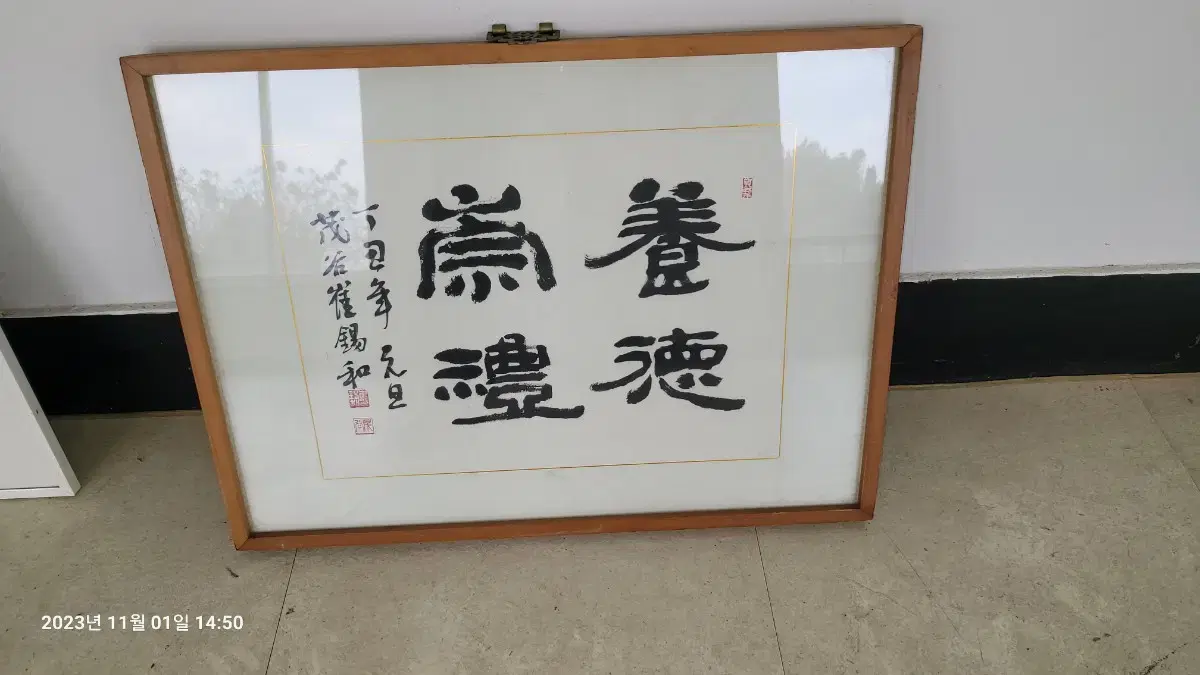 養德
崇禮
丁丑年 元旦
茂谷崔錫和
2023년 11월 01일 14:50